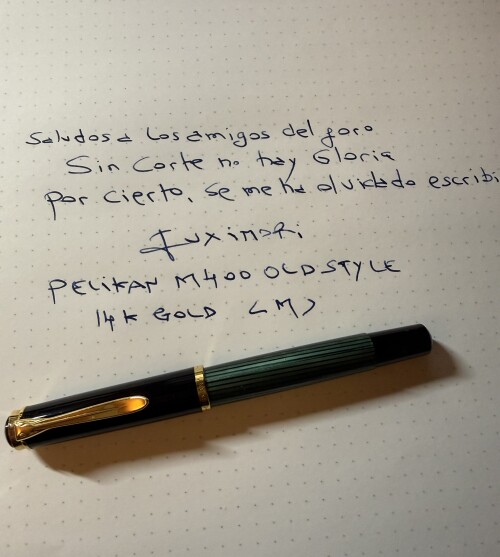 Saludos a los amigos del foro
Sin Corte no hay Gloria
por cierto, se me ha olvidado escribi
Fuximori
PELIKAN M400 OLD STYLE
14K GOLD <M>